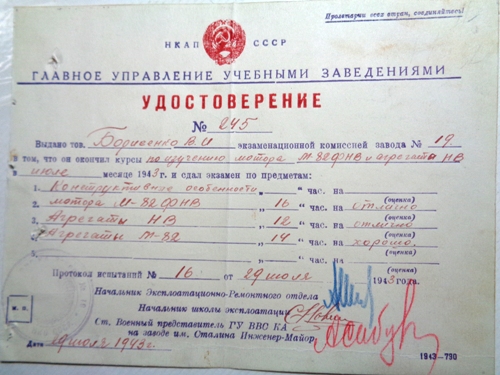 Пролетарии всех стран, соединяйтесь!
НКАП СССР
ГЛАВНОЕ УПРАВЛЕНИЕ УЧЕБНЫМИ ЗАВЕДЕНИЯМИ
УДОСТОВЕРЕНИЕ
№ 245
Выдано тов. Борисенко В.И экзаменационной комиссией завода № 19
в том, что он окончил курсы по изучению мотора М-82ФНВ и агрегаты НВ
в июле месяце 1943 г. и сдал экзамен по предметам:
1. Конструктивные особенности „ час. на
(оценка)
2. мотора М-82ФНВ „ 16 „ час. на отлично
(оценка)
3. Агрегаты НВ „ 12 „ час. на отлично
(оценка)
Агрегаты М-82 „ 14 „ час. на хорошо.
(оценка)
Протокол испытаний № 16 от 29 июля 1943 года.
Начальник Эксплоатационно-Ремонтного отдела
Начальник школы эксплоатации
Ст. Военный представитель ГУ ВВС КА
на заводе им. Сталина Инженер-Майор
м. п.
Дата 29 июля 1943 г.
1943—730